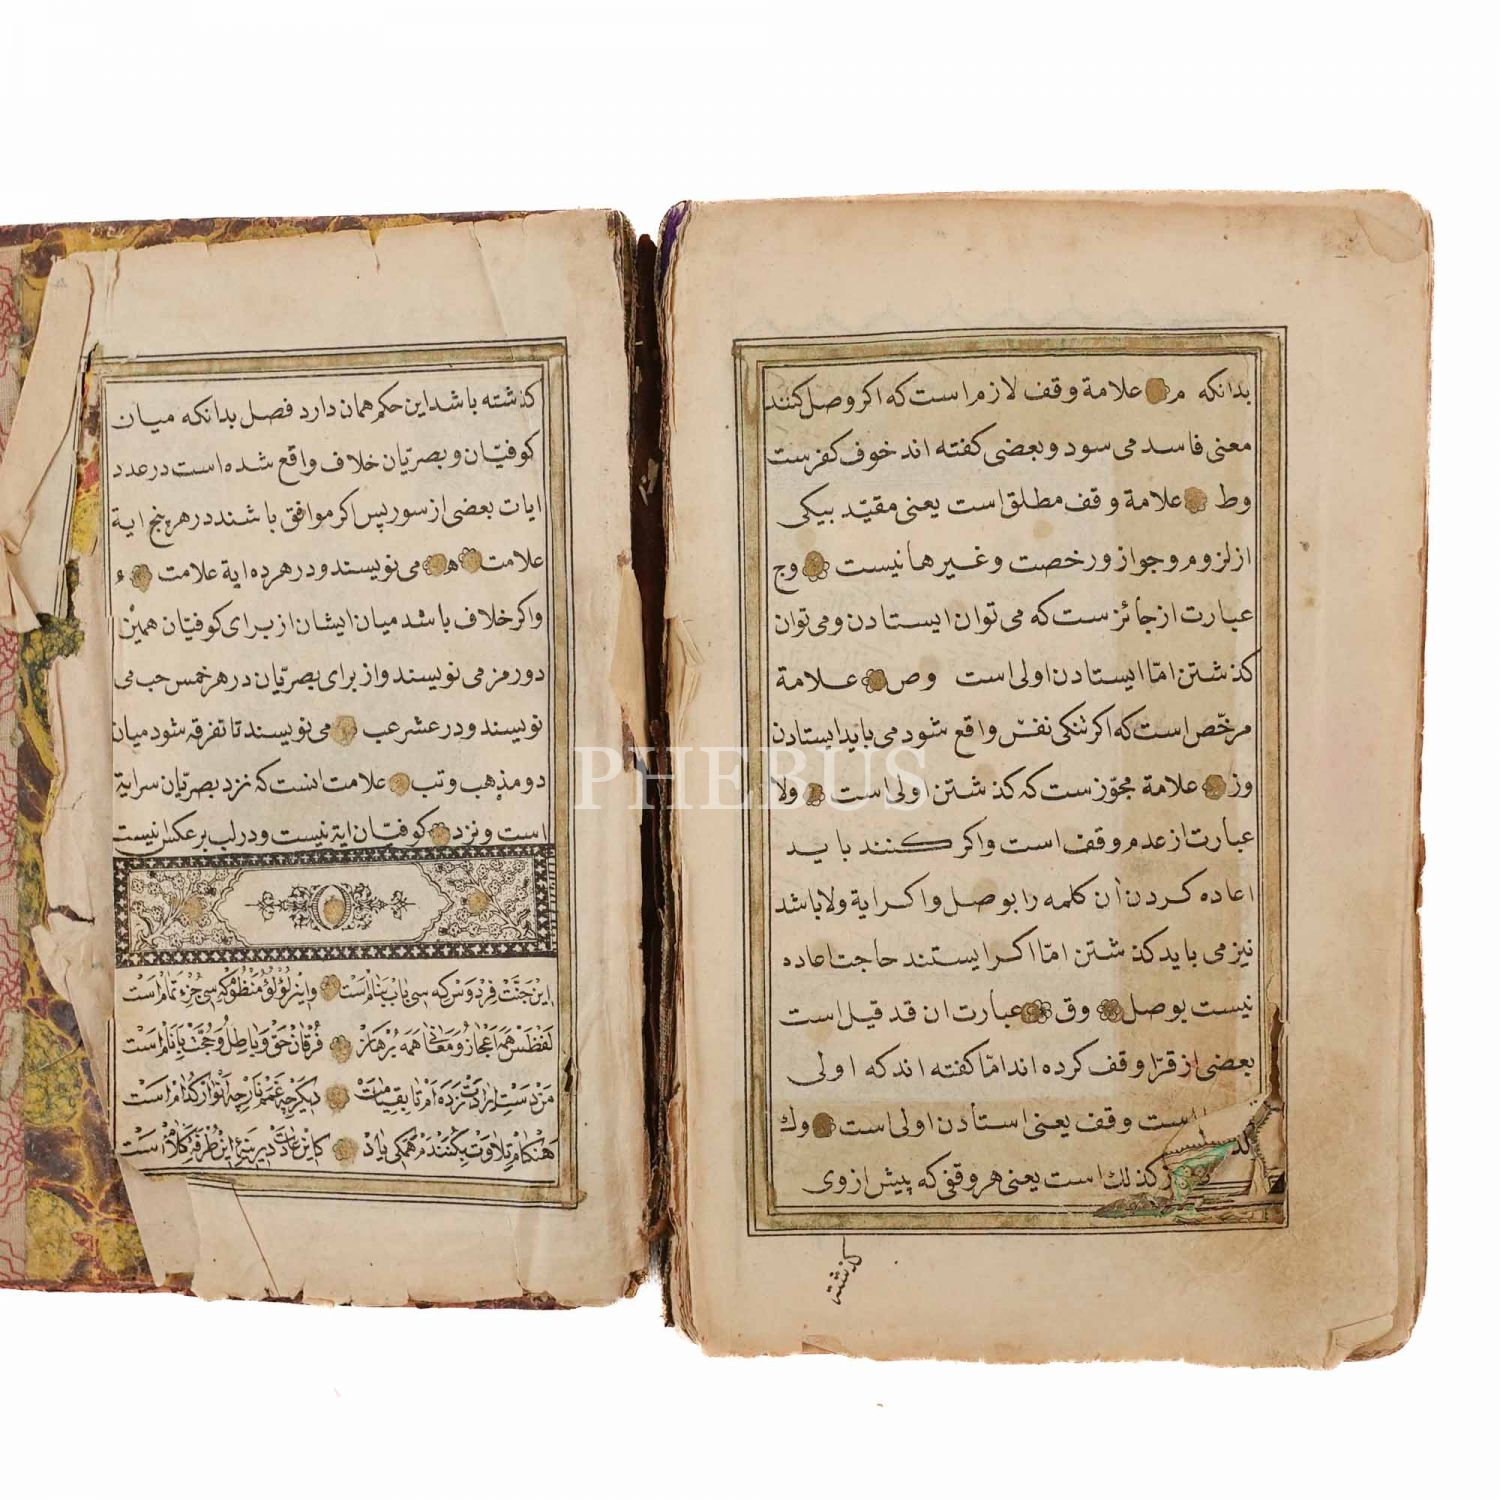 بدانکه م علامة وقف لازم است که اکر وصل کنند
معنی فاسد می سود و بعضی کفته اند خوف کفرست
وط علامة وقف مطلق است یعنی مقیّد بیکی
از لزوم و جواز و رخصت و غیر ها نیست وج
عبارت از جائز ست که می توان ایستادن و می توان
کذشتن امّا ایستادن اولی است وص علامة
مرخّص است که اکر تنکی نفس واقع شود می باید ایستادن
وز علامة مجوّز ست که کذشتن اولی است ولا
عبارت از عدم وقف است و اکر کنند باید
اعاده کردن آن کلمه را بوصل و اکر ایة ولا باشد
نیز می باید کذشتن امّا اکر ایستند حاجت اعاده
نیست بوصل وق عبارت ان قد قیل است
بعضی از قرّا وقف کرده اند امّا کفته اند که اولی
است وقف یعنی استادن اولی است وك
کذلك است یعنی هر وقفی که پیش از وی
کذشته
کذشته باشد این حکم همان دارد فصل بدانکه میان
کوفیّان و بصریّان خلاف واقع شده است در عدد
ایات بعضی از سور پس اکر موافق باشند در هر پنج ایة
علامت ه می نویسند و در هر ده ایة علامت ء
واکر خلاف باشد میان ایشان از برای کوفیّان همین
دو رمز می نویسند و از برای بصریّان در هر خمس حب می
نویسند و در عشر عب می نویسند تا تفرقه شود میان
دو مذهب و تب علامت انست که نزد بصریّان سرایة
است و نزد کوفیّان ایة نیست و در لب بر عکس نیست
این جنّت فردوس که سی باب بنام است واین لؤلؤ منظوم که سی جزء تمام است
لفظش همه اعجاز و معانی همه برهان فرقان حق و باطل و حجّت بانام است
من دست ارادت زده ام تا بقیامت دیکر چه غمم نار چه انوار کدام است
هنکام تلاوت بکنندم همکی یاد کاین عادت دیرینهٔ این طرفه کلام است
PHEBUS